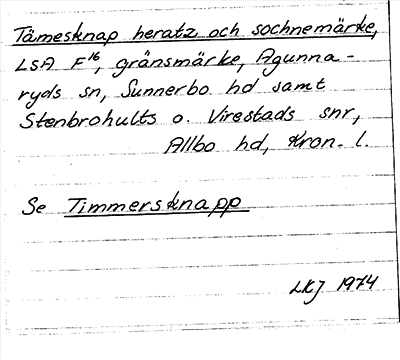 Tämesknap heratz och sochnemärke,
LSA F16, gränsmärke, Agunna-
ryds sn, Sunnerbo hd samt
Stenbrohults o. Virestads snr,
Allbo hd, Kron. l.
Se Timmersknapp
LKJ 1974